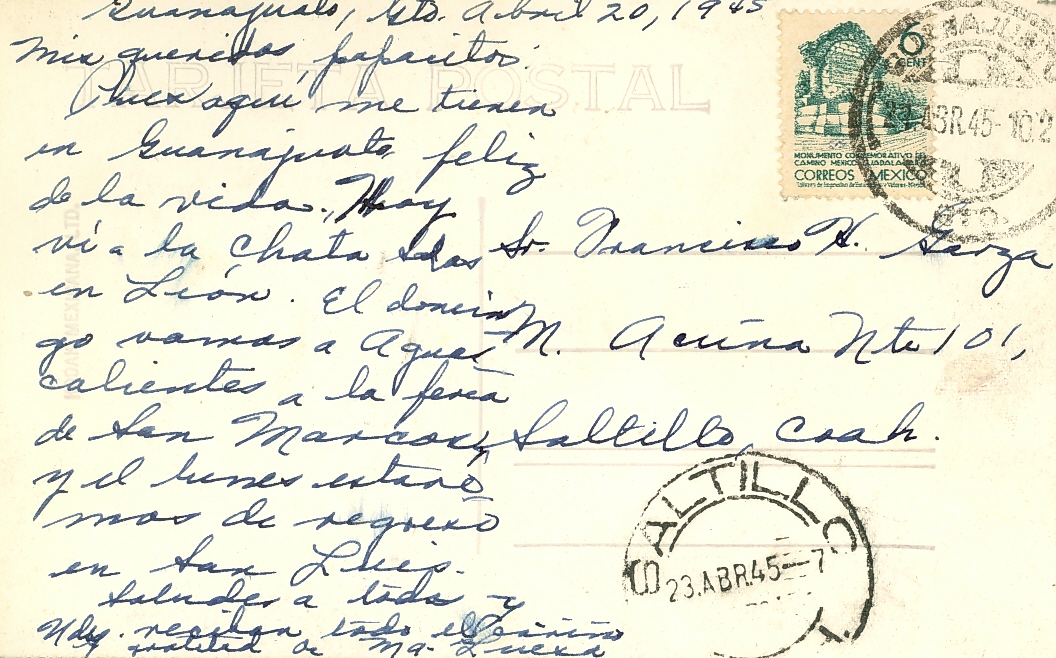 Guanajuato, Gto. Abril 20, 1945
Mis queridos papacitos:
TARJETA POSTAL
Pues aquí me tienen
en Guanajuato feliz
de la vida. Hoy
ví a la Chata
en León. El domin
go vamos a Aguas
calientes a la feria
de San Marcos,
y el lunes estare
mos de regreso
en San Luis.
Saludes a todos y
Uds. reciban todo el cariño
y gratitud de Ma. Luisa
6
CENT
MONUMENTO CONMEMORATIVO DEL
CAMINO MEXICO GUADALAJARA
CORREOS MEXICO
GUANAJUATO
ABR.45
GTO.
Sr. Francisco H. Garza
M. Acuña Nte 101,
Saltillo, Coah.
SALTILLO
23.ABR.45-7